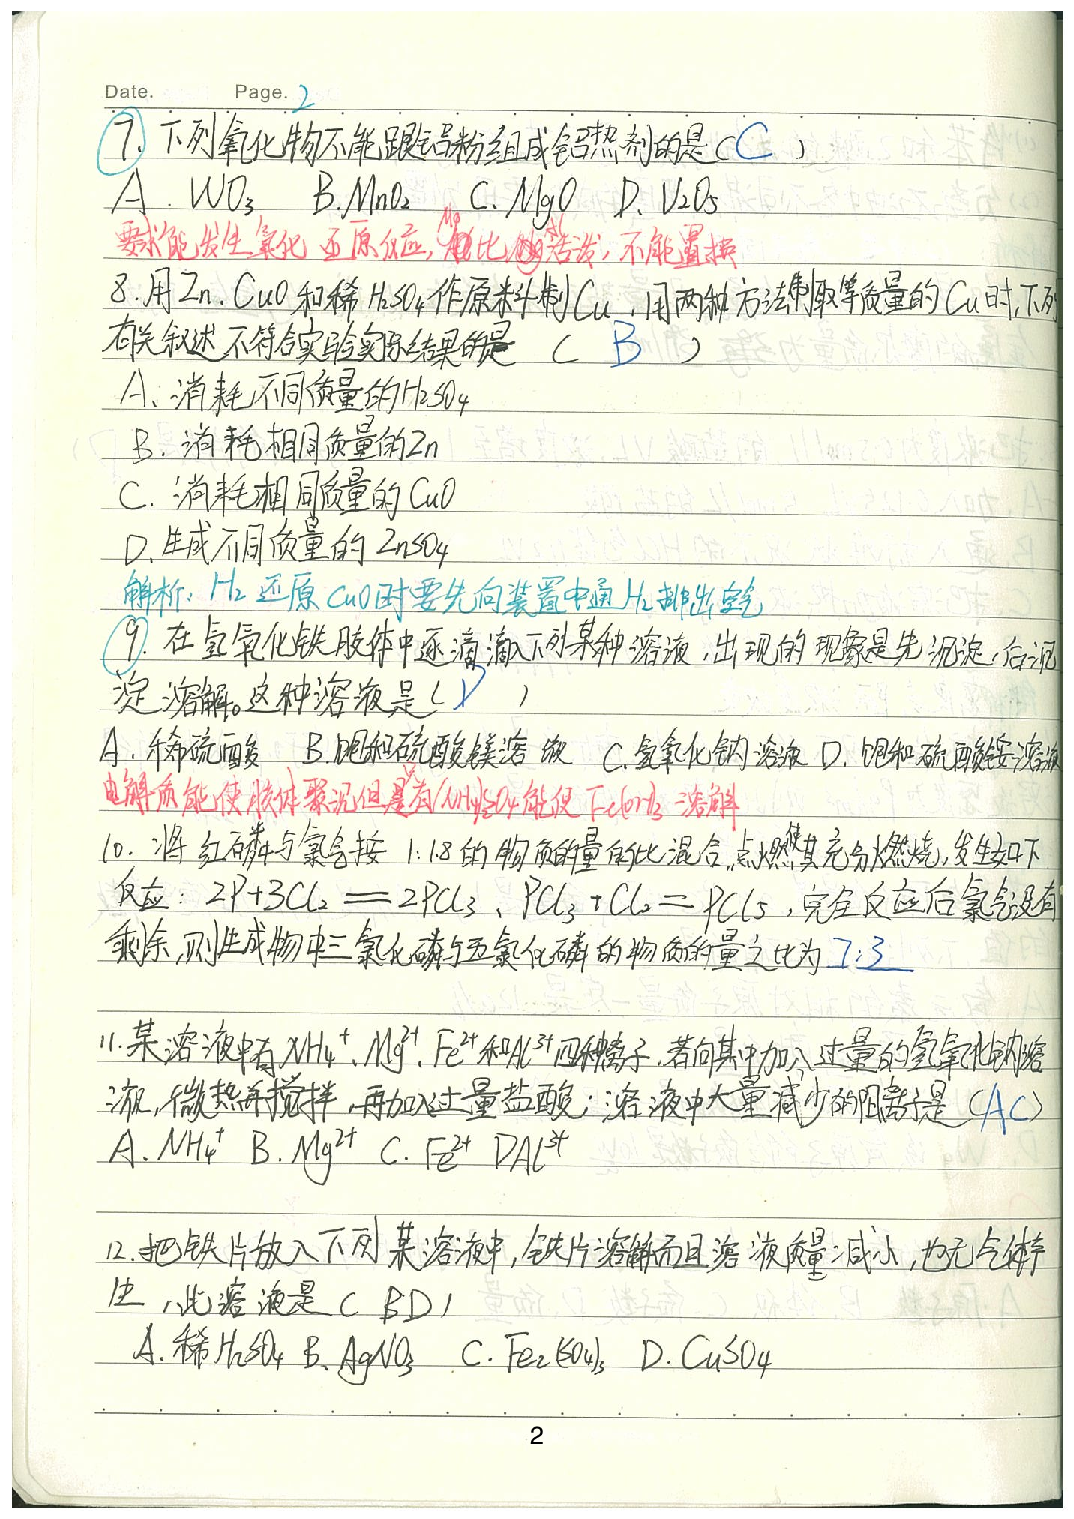 Date. Page. 2
7. 下列氧化物不能跟铝粉组成铝热剂的是(C)
A. WO₃ B. MnO₂ C. MgO D. V₂O₅
要求能发生氧化还原反应, Mg比Al活泼, 不能置换
8. 用Zn、CuO和稀H₂SO₄作原料制Cu, 用两种方法制取等质量的Cu时, 下列
有关叙述不符合实验实际结果的是 (B)
A、消耗不同质量的H₂SO₄
B. 消耗相同质量的Zn
C. 消耗相同质量的CuO
D. 生成不同质量的ZnSO₄
解析: H₂还原CuO时要先向装置中通H₂排出空气
9. 在氢氧化铁胶体中逐滴滴入下列某种溶液, 出现的现象是先沉淀, 后沉
淀溶解。这种溶液是(D)
A. 稀硫酸 B. 饱和硫酸镁溶液 C. 氢氧化钠溶液 D. 饱和硫酸铵溶液
电解质能使胶体聚沉但是有(NH₄)₂SO₄能使Fe(OH)₃溶解
10. 将红磷与氯气按1:1.8的物质的量的比混合, 点燃使其充分燃烧, 发生如下
反应: 2P+3Cl₂══2PCl₃、PCl₃+Cl₂═PCl₅, 完全反应后氯气没有
剩余, 则生成物中三氯化磷与五氯化磷的物质的量之比为7:3
11. 某溶液中有NH₄⁺、Mg²⁺、Fe²⁺和Al³⁺四种离子, 若向其中加入过量的氢氧化钠溶
液, 微热并搅拌, 再加入过量盐酸; 溶液中大量减少的阳离子是(AC)
A. NH₄⁺ B. Mg²⁺ C. Fe²⁺ D Al³⁺
12. 把铁片放入下列某溶液中, 铁片溶解而且溶液质量减小, 也无气体产
生, 此溶液是(BD)
A. 稀H₂SO₄ B. AgNO₃ C. Fe₂(SO₄)₃ D. CuSO₄
2